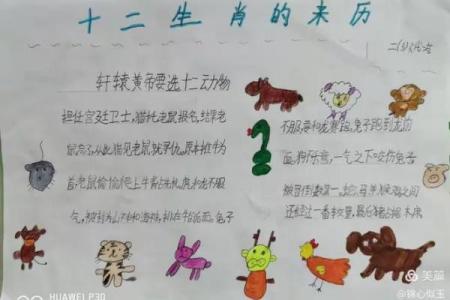 十二生肖的来历
轩辕黄帝要选十二动物
担任宫廷卫士，猫托老鼠报名，结果老
鼠忘了，从此猫见老鼠就寻仇。原本推牛为
首，老鼠偷偷爬上牛背占先机，虎和龙不服
气，被封为山和海，排在牛的后面。兔子
不服，要和龙赛跑，兔子跑到龙前
面，狗不乐意，一气之下咬伤兔子
被罚到倒数第一，蛇、马、羊、猴、鸡之间
还经过一番较量，最后猪占据末席
HUAWEI P30
美篇
@锦心似玉